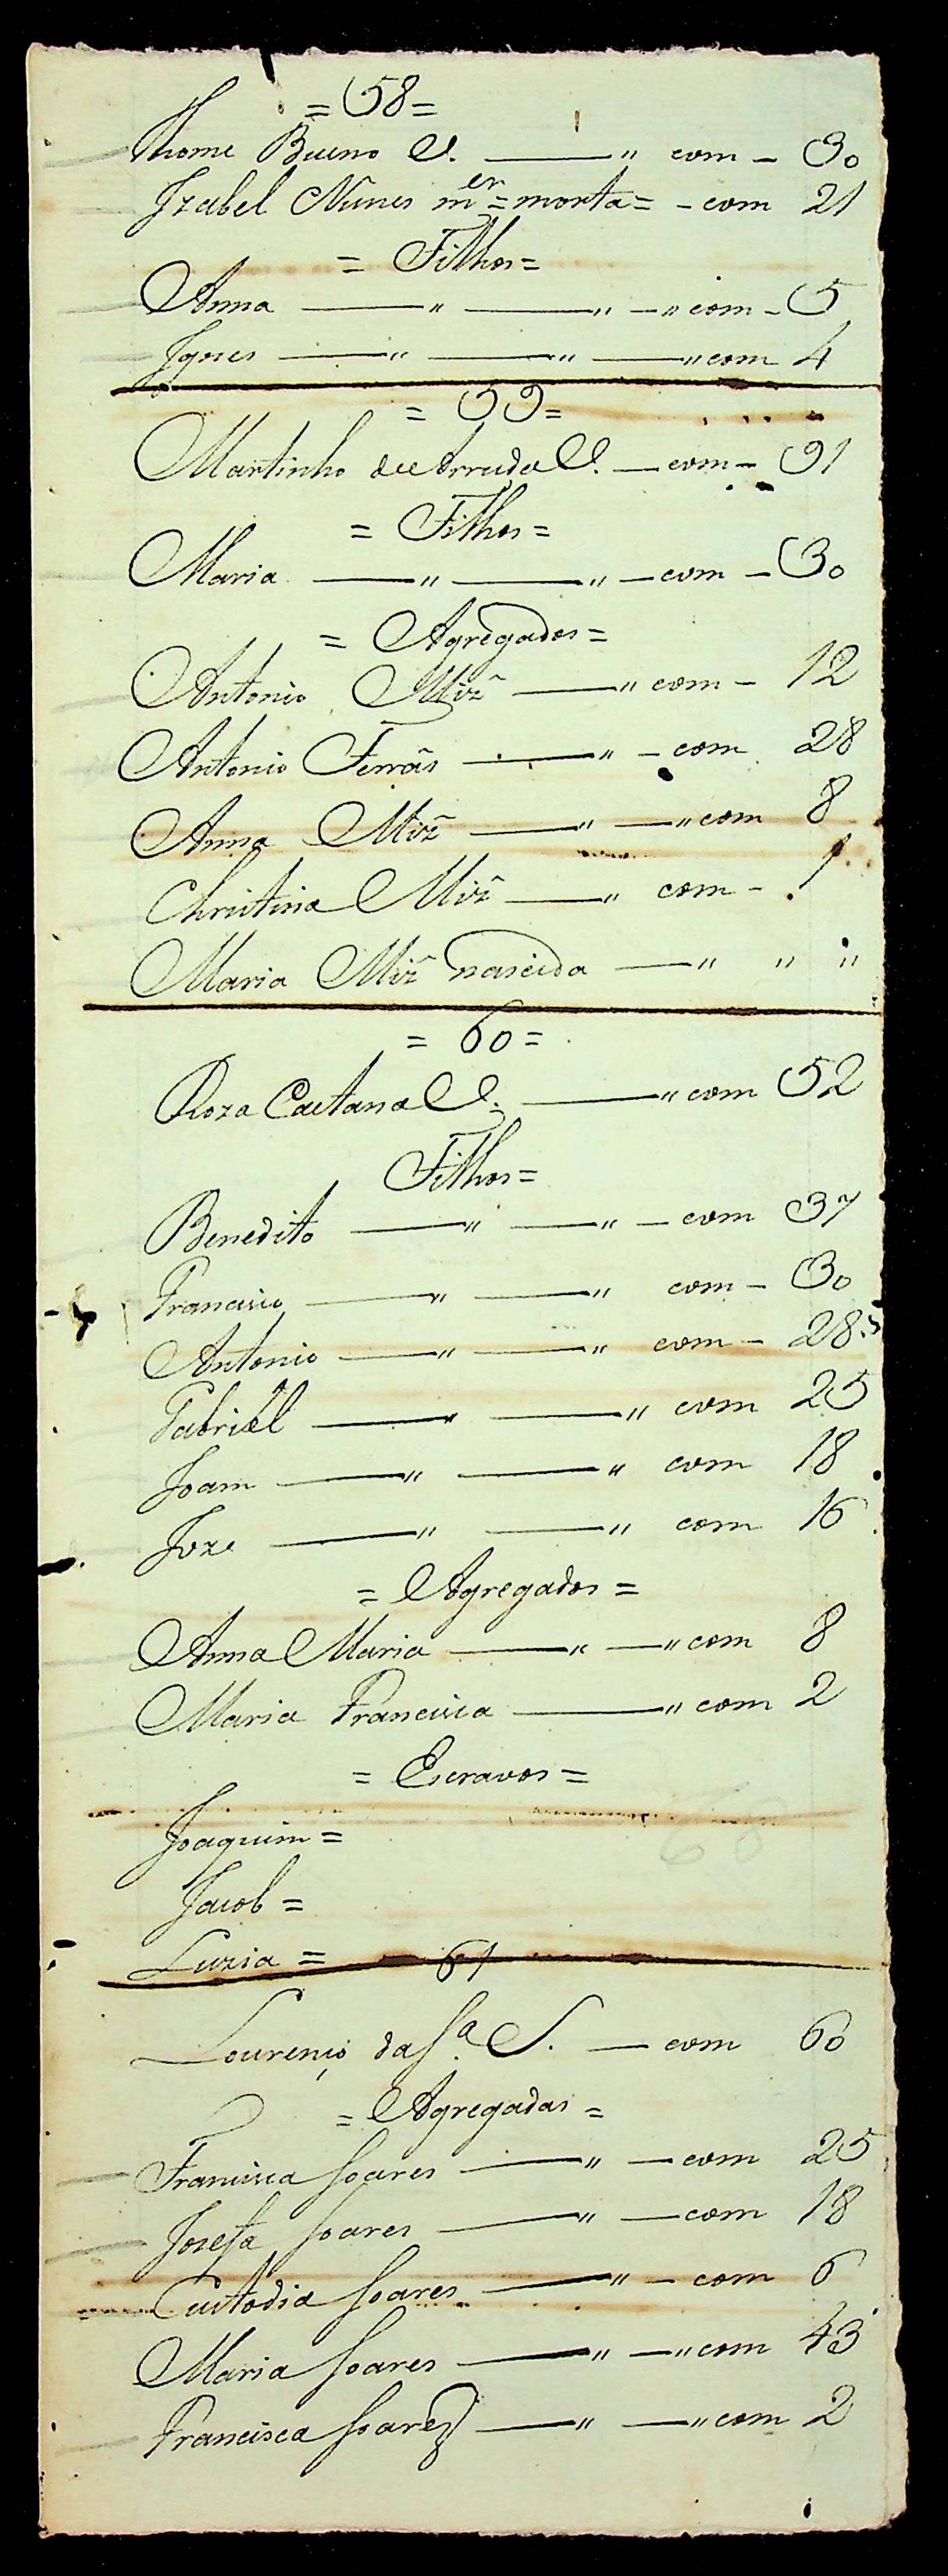 = 58 =
Thome Bueno V. — " com - 30
Izabel Nunes m.er = morta = - com 21
= Filhos =
Anna — " — " — " com - 5
Ignes — " — " — " com 4
= 59 =
Martinho de Arruda V. — com - 91
= Filhos =
Maria — " — " — com - 30
= Agregados =
Antonio Miz — " com - 12
Antonio Ferrâs — " - com 28
Anna Miz — " — " com 8
Christina Miz — " com - 1
Maria Miz nascida — " " "
= 60 =
Roza Caetana V. — " com 52
Filhos =
Benedito — " — " — com 37
Francisco — " — " com - 30
Antonio — " — " com - 28
Gabriel — " — " com 25
Joam — " — " com 18
Joze — " — " com 16
= Agregados =
Anna Maria — " — " com 8
Maria Francisca — " com 2
= Escravos =
Joaquim =
Jacob =
Luzia =
61
Lourenço da S.a S. — com 60
= Agregadas =
Francisca Soares — " — com 25
Josefa Soares — " — com 18
Custodia Soares — " — com 6
Maria Soares — " — " com 43
Francisca Soares — " — " com 2